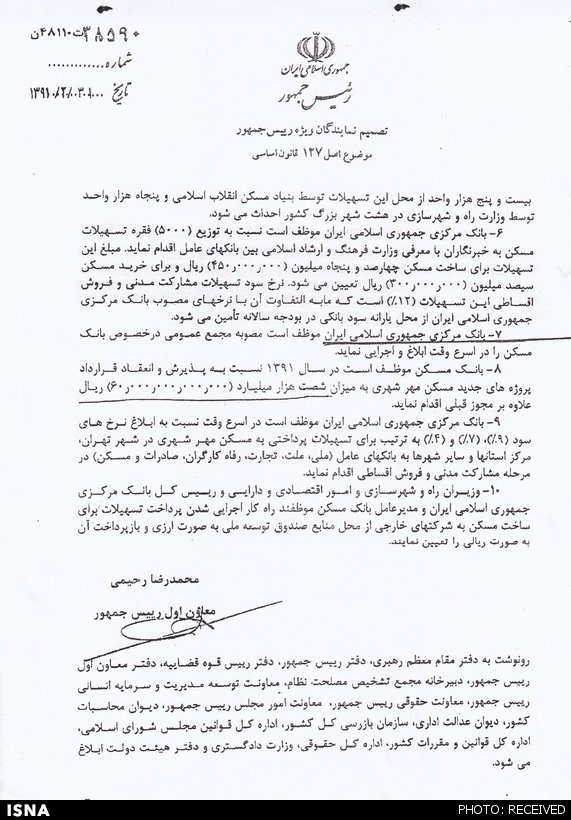 ۳۸۵۹۰ت۴۸۱۱۰ن
شماره
تاریخ ۱۳۹۱۰/۲/۰۰۳۰۱۰۰۰
جمهوری اسلامی ایران
رئیس جمهور
تصمیم نمایندگان ویژه رییس جمهور
موضوع اصل ۱۲۷ قانون اساسی
بیست و پنج هزار واحد از محل این تسهیلات توسط بنیاد مسکن انقلاب اسلامی و پنجاه هزار واحد
توسط وزارت راه و شهرسازی در هشت شهر بزرگ کشور احداث می شود.
۶- بانک مرکزی جمهوری اسلامی ایران موظف است نسبت به توزیع (۵۰۰۰) فقره تسهیلات
مسکن به خبرنگاران با معرفی وزارت فرهنگ و ارشاد اسلامی بین بانکهای عامل اقدام نماید. مبلغ این
تسهیلات برای ساخت مسکن چهارصد و پنجاه میلیون (۴۵۰٫۰۰۰٫۰۰۰) ریال و برای خرید مسکن
سیصد میلیون (۳۰۰٫۰۰۰٫۰۰۰) ریال تعیین می شود. نرخ سود تسهیلات مشارکت مدنی و فروش
اقساطی این تسهیلات (۱۲٪) است که مابه التفاوت آن با نرخهای مصوب بانک مرکزی
جمهوری اسلامی ایران از محل یارانه سود بانکی در بودجه سالانه تأمین می شود.
۷- بانک مرکزی جمهوری اسلامی ایران موظف است مصوبه مجمع عمومی درخصوص بانک
مسکن را در اسرع وقت ابلاغ و اجرایی نماید.
۸- بانک مسکن موظف است در سال ۱۳۹۱ نسبت به پذیرش و انعقاد قرارداد
پروژه های جدید مسکن مهر شهری به میزان شصت هزار میلیارد (۶۰٫۰۰۰٫۰۰۰٫۰۰۰٫۰۰۰) ریال
علاوه بر مجوز قبلی اقدام نماید.
۹- بانک مرکزی جمهوری اسلامی ایران موظف است در اسرع وقت نسبت به ابلاغ نرخ های
سود (۹٪)، (۷٪) و (۴٪) به ترتیب برای تسهیلات پرداختی به مسکن مهر شهری در شهر تهران،
مرکز استانها و سایر شهرها به بانکهای عامل (ملی، ملت، تجارت، رفاه کارگران، صادرات و مسکن) در
مرحله مشارکت مدنی و فروش اقساطی اقدام نماید.
۱۰- وزیران راه و شهرسازی و امور اقتصادی و دارایی و رییس کل بانک مرکزی
جمهوری اسلامی ایران و مدیرعامل بانک مسکن موظفند راه کار اجرایی شدن پرداخت تسهیلات برای
ساخت مسکن به شرکتهای خارجی از محل منابع صندوق توسعه ملی به صورت ارزی و بازپرداخت آن
به صورت ریالی را تعیین نمایند.
محمدرضا رحیمی
معاون اول رییس جمهور
رونوشت به دفتر مقام معظم رهبری، دفتر رییس جمهور، دفتر رییس قوه قضاییه، دفتر معاون اول
رییس جمهور، دبیرخانه مجمع تشخیص مصلحت نظام، معاونت توسعه مدیریت و سرمایه انسانی
رییس جمهور، معاونت حقوقی رییس جمهور، معاونت امور مجلس رییس جمهور، دیوان محاسبات
کشور، دیوان عدالت اداری، سازمان بازرسی کل کشور، اداره کل قوانین مجلس شورای اسلامی،
اداره کل قوانین و مقررات کشور، اداره کل حقوقی، وزارت دادگستری و دفتر هیئت دولت ابلاغ
می شود.
ISNA
PHOTO: RECEIVED